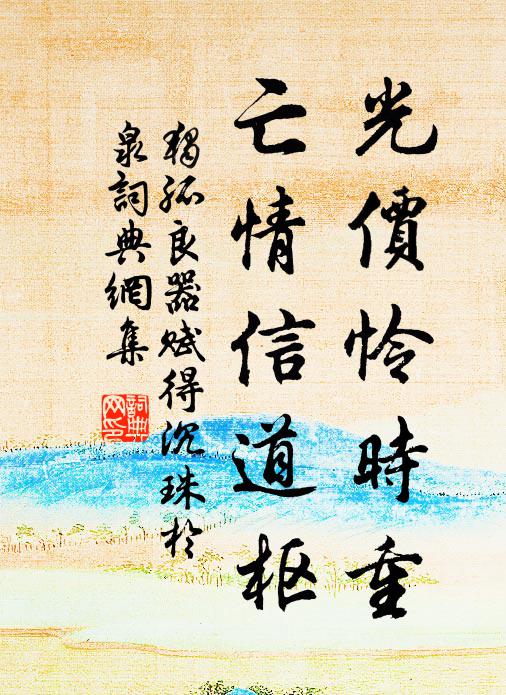 光價怜時重
亡情信道枢
獨孤良器賦得沉珠於
泉詞典網集
詞典網印